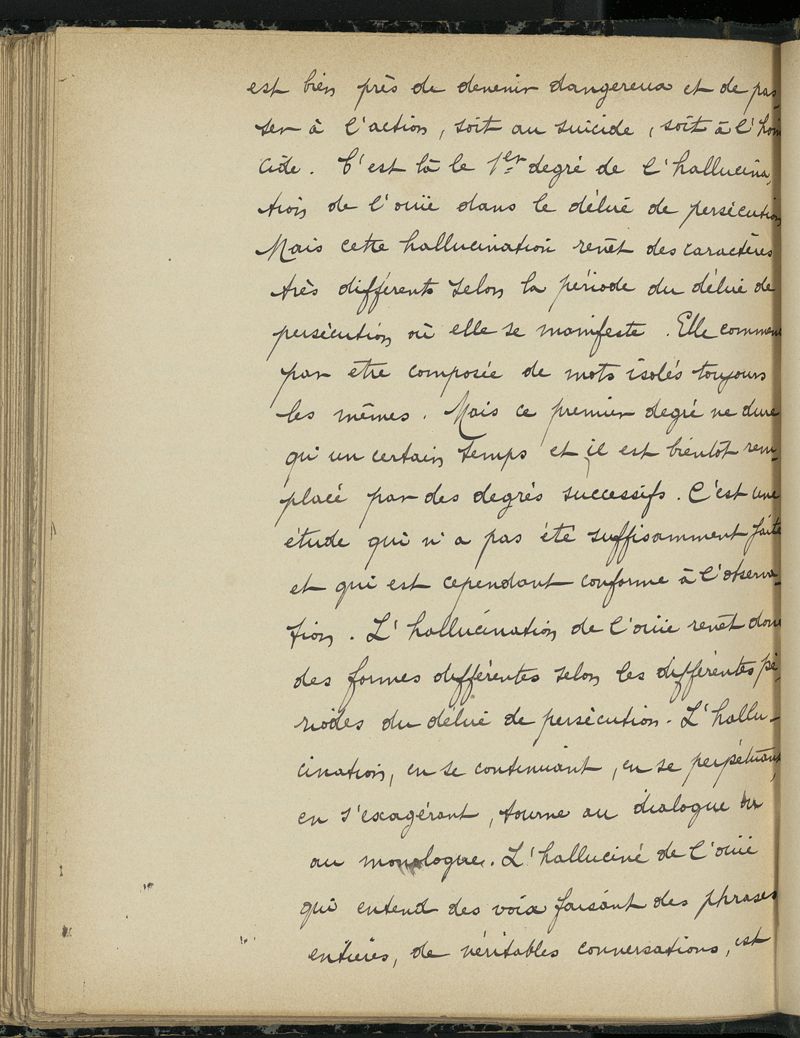 est bien près de devenir dangereux et de pas-
ser à l'action, soit au suicide, soit à l'hom
cide. C'est là le 1er degré de l'hallucina-
tion de l'ouïe dans le délire de persécution
Mais cette hallucination revêt des caractères
très différents selon la période du délire de
persécution où elle se manifeste. Elle commen
par etre composée de mots isolés toujours
les mêmes. Mais ce premier degré ne dure
qu'un certain temps et il est bientôt rem-
placé par des degrés successifs. C'est une
étude qui n'a pas été suffisamment faite
et qui est cependant conforme à l'observa-
tion. L'hallucination de l'ouïe revêt donc
des formes différentes selon les différentes pé-
riodes du délire de persécution. L'hallu-
cination, en se continuant, en se perpétuant,
en s'exagérant, tourne au dialogue ou
au monologue. L'halluciné de l'ouïe
qui entend des voix faisant des phrases
entières, de véritables conversations, est